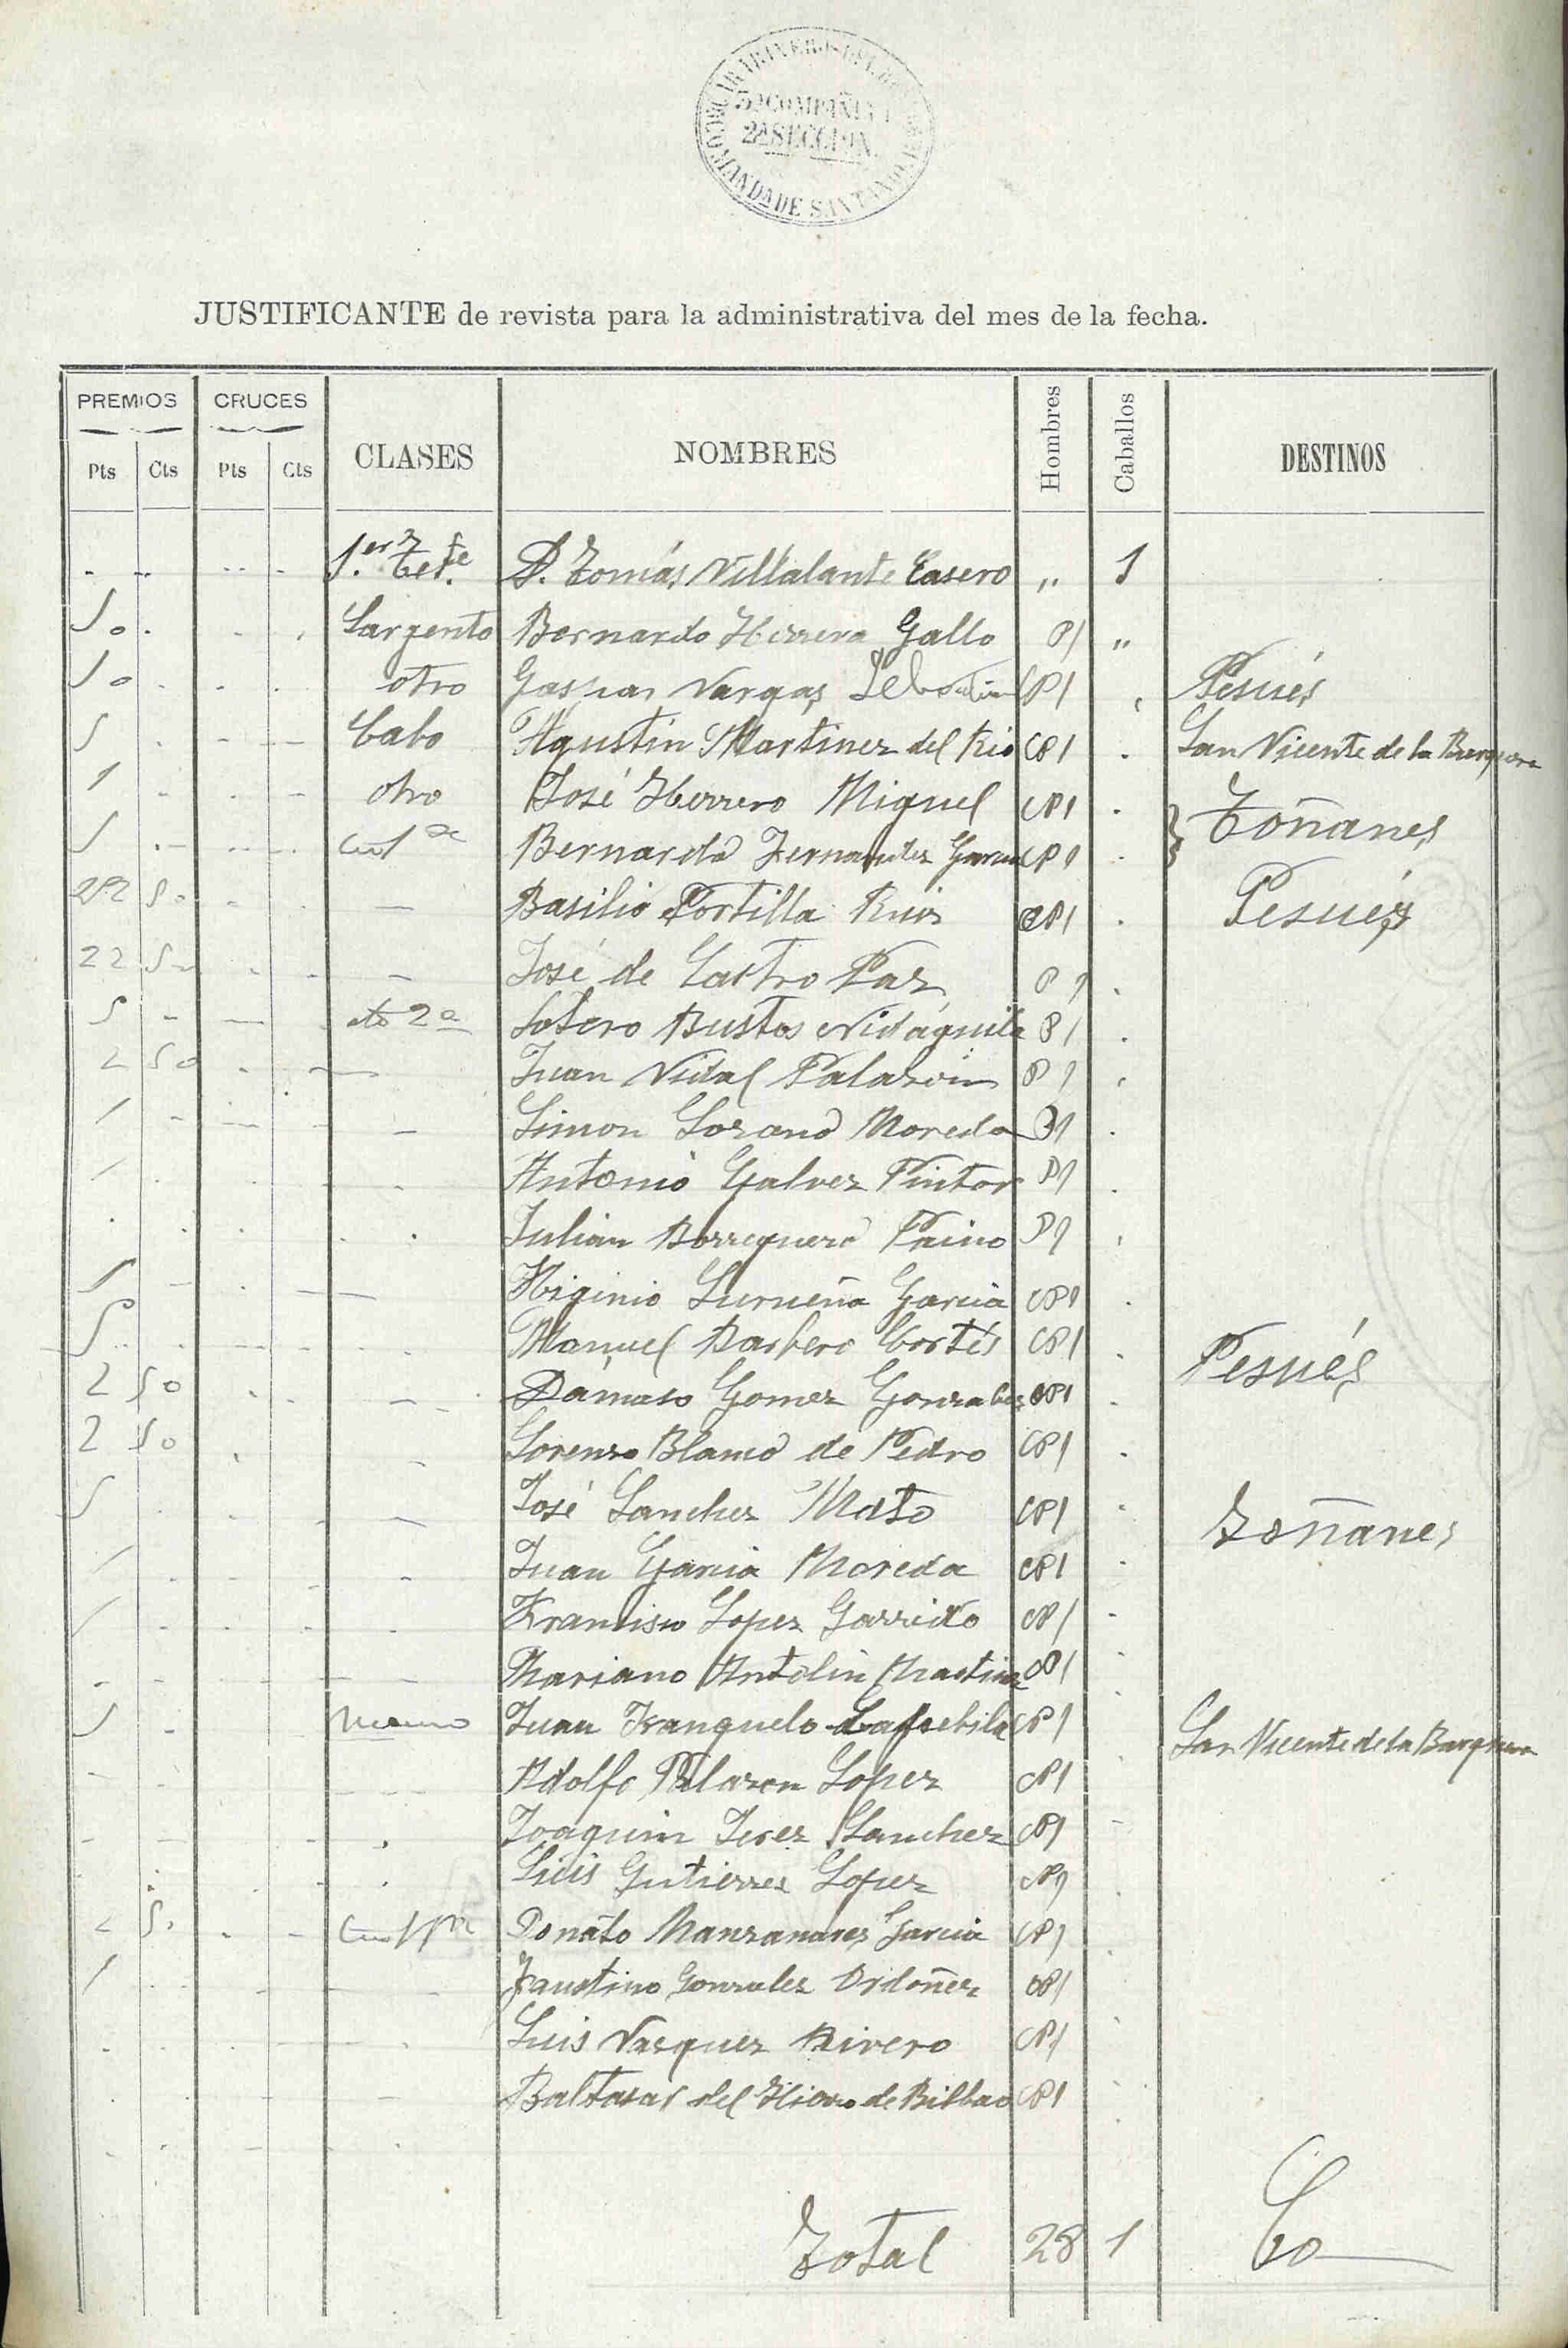 3ª COMPAÑIA
2ª SECCION.
COMANDA DE SANTANDER
JUSTIFICANTE de revista para la administrativa del mes de la fecha.
PREMIOS CRUCES CLASES NOMBRES Hombres Caballos DESTINOS
Pts Cts Pts Cts
1.er Tet.e D. Tomás Villalante Casero " 1
10 Sargento Bernardo Herrera Gallo P 1 "
10 otro Gaspar Vargas P 1 Pesués
5 Cabo Agustin Martinez del Rio P 1 San Vicente de la Barquera
1 otro José Herrero Miguel P 1
5 Bernardo Fernandez Garcia P 1 } Toñanes
22 50 — Basilio Portilla Ruiz P 1 Pesués
22 50 — José de Castro Paz P 1
5 - — 2ª Sotero Bustos Nidáguila P 1
2 50 Juan Vidal Palazón P 1
1 - — Simon Lozano Moreda P 1
1 Antonio Galvez Pintor P 1
Julian Borreguero Paino P 1
1 — Higinio Surueña Garcia P 1
5 Manuel Barbero Cortés P 1
2 50 — Damaso Gomez Gonzalez P 1 Pesués
2 50 — Lorenzo Blanco de Pedro P 1
5 — José Sanchez Mato P 1
1 Juan Garcia Moreda P 1 Toñanes
1 Francisco Lopez Garrido P 1
Mariano Antolin Martinez P 1
5 - Juan Franquelo P 1 San Vicente de la Barquera
Adolfo Palazon Lopez P 1
Joaquin Jerez Sanchez P 1
Luis Gutierrez Lopez P 1
2 50 Donato Manzanares Garcia P 1
1 Faustino Gonzalez Ordoñez P 1
Luis Vazquez Rivero P 1
Baltasar del Hierro de Bilbao P 1
Total 28 1